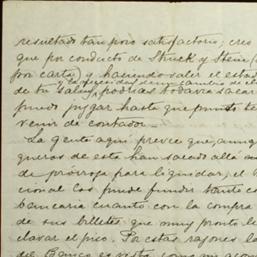 resultado tan poco satisfactorio; creo
que por conducto de Struck y Stein (
y la necesidad de un cambio de cli
por carta) y haciendo valer el estado
de tu salud, podrías todavía sacar
puedo juzgar hasta que punto te
venir de contador.
La gente aquí prevee que, aunq
queros de esta han sacado allá un
de prórroga para liquidar, el N
cional los puede fundir tanto co
bancaria cuanto con la compra
de sus billetes que muy pronto le
clavar el pico. Por estas razones la
del Banco es vista como mi acom